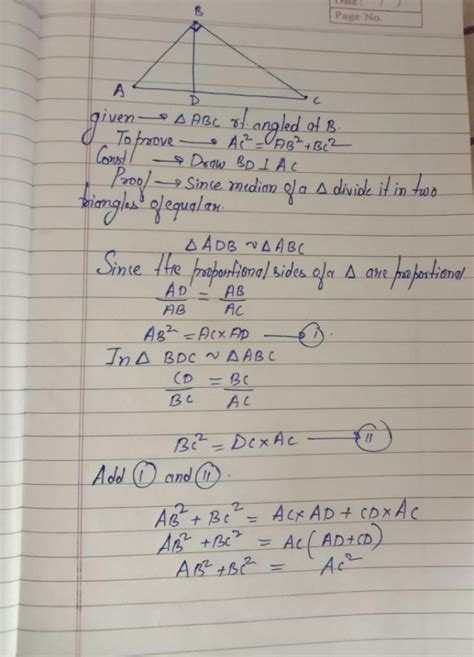 Date: / /
Page No.
B
A
D
C
given → △ABC rt. angled at B.
To prove → AC² = AB² + BC²
Const → Draw BD ⊥ AC
Proof → Since median of a △ divide it in two
triangles of equal ar.
△ADB ~ △ABC
Since the proportional sides of a △ are proportional
AD/AB = AB/AC
AB² = AC×AD → (I)
In △ BDC ~ △ABC
CD/BC = BC/AC
BC² = DC×AC → (II)
Add (I) and (II).
AB² + BC² = AC×AD + CD×AC
AB² + BC² = AC(AD+CD)
AB² + BC² = AC²